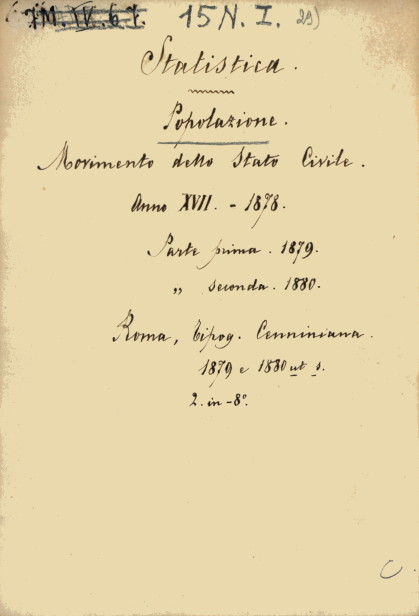 7M. IV. 6 7. 15 N. I. 29)
Statistica.
Popolazione.
Movimento dello Stato Civile.
Anno XVII. - 1878.
Parte prima. 1879.
„ seconda. 1880.
Roma, Tipog. Cenniniana.
1879 e 1880 ut s.
2. in-8°.
C